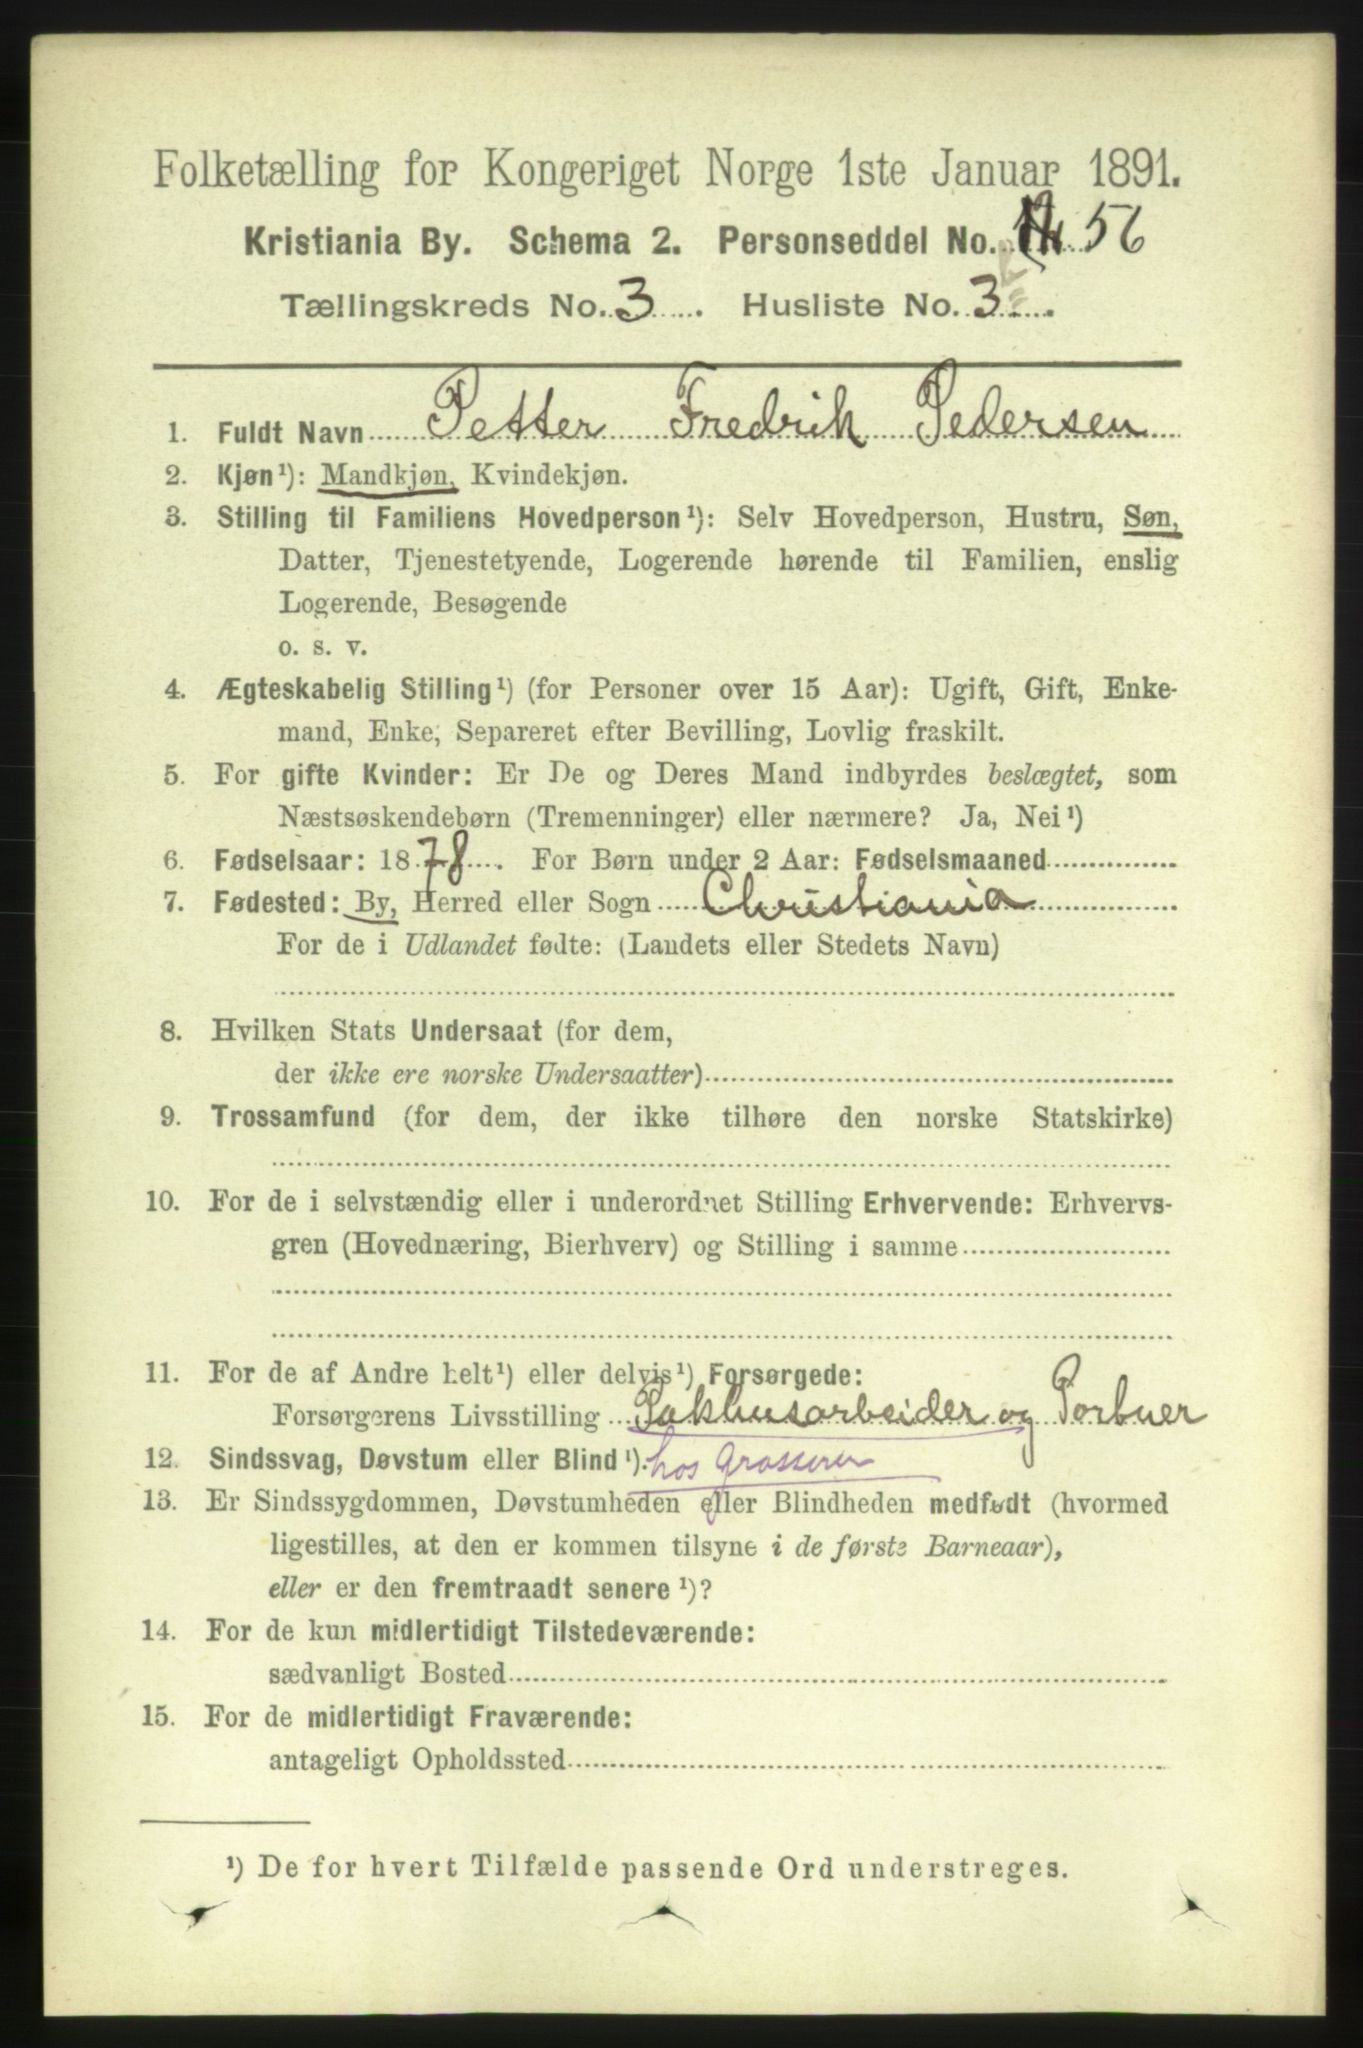 Folketælling for Kongeriget Norge 1ste Januar 1891.
Kristiania By. Schema 2. Personseddel No. 56
Tællingskreds No. 3. Husliste No. 3
1. Fuldt Navn Petter Fredrik Pedersen
2. Kjøn¹): Mandkjøn, Kvindekjøn.
3. Stilling til Familiens Hovedperson¹): Selv Hovedperson, Hustru, Søn,
Datter, Tjenestetyende, Logerende hørende til Familien, enslig
Logerende, Besøgende
o. s. v.
4. Ægteskabelig Stilling¹) (for Personer over 15 Aar): Ugift, Gift, Enke-
mand, Enke, Separeret efter Bevilling, Lovlig fraskilt.
5. For gifte Kvinder: Er De og Deres Mand indbyrdes beslægtet, som
Næstsøskendebørn (Tremenninger) eller nærmere? Ja, Nei¹)
6. Fødselsaar: 1878. For Børn under 2 Aar: Fødselsmaaned
7. Fødested: By, Herred eller Sogn Christiania
For de i Udlandet fødte: (Landets eller Stedets Navn)
8. Hvilken Stats Undersaat (for dem,
der ikke ere norske Undersaatter)
9. Trossamfund (for dem, der ikke tilhøre den norske Statskirke)
10. For de i selvstændig eller i underordnet Stilling Erhvervende: Erhvervs-
gren (Hovednæring, Bierhverv) og Stilling i samme
11. For de af Andre helt¹) eller delvis¹) Forsørgede:
Forsørgerens Livsstilling Pakhusarbeider og Portner
12. Sindssvag, Døvstum eller Blind¹). hos Grosserer
13. Er Sindssygdommen, Døvstumheden eller Blindheden medfødt (hvormed
ligestilles, at den er kommen tilsyne i de første Barneaar),
eller er den fremtraadt senere¹)?
14. For de kun midlertidigt Tilstedeværende:
sædvanligt Bosted
15. For de midlertidigt Fraværende:
antageligt Opholdssted
¹) De for hvert Tilfælde passende Ord understreges.